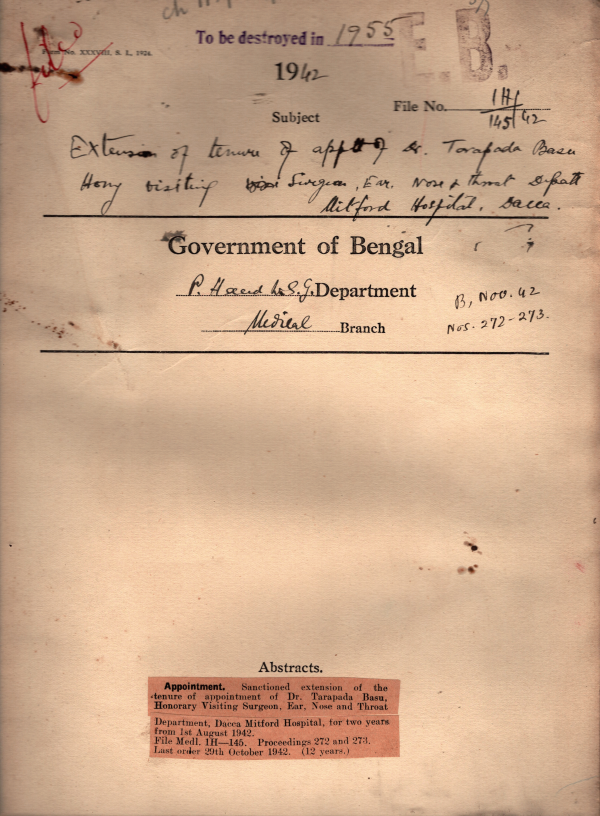 To be destroyed in 1955
E.B.
Form No. XXXVIII. S. L., 1924.
1942
File No. 1H/145/42
Subject
Extension of tenure of appt of Dr. Tarapada Basu
Hony visiting Surgeon, Ear, Nose & throat Deptt
Mitford Hospital, Dacca.
Government of Bengal
P. H. and L. S. G. Department
Medical Branch
B, Nov. 42
Nos. 272-273.
Abstracts.
Appointment. Sanctioned extension of the
tenure of appointment of Dr. Tarapada Basu,
Honorary Visiting Surgeon, Ear, Nose and Throat
Department, Dacca Mitford Hospital, for two years
from 1st August 1942.
File Medl. 1H—145. Proceedings 272 and 273.
Last order 29th October 1942. (12 years.)